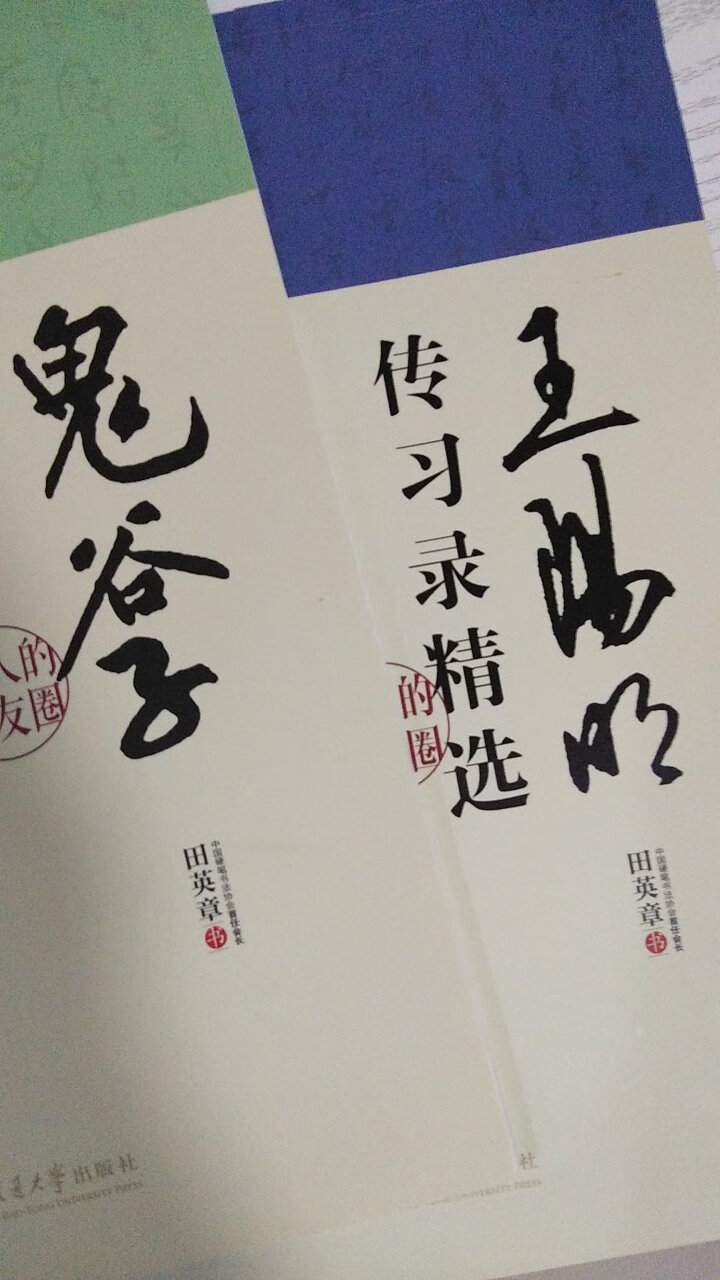 鬼谷子
人的
友圈
中国硬笔书法协会首任会长
田英章 书
通大学出版社
TONG UNIVERSITY PRESS
王阳明
传习录精选
的
圈
中国硬笔书法协会首任会长
田英章 书
社
UNIVERSITY PRESS